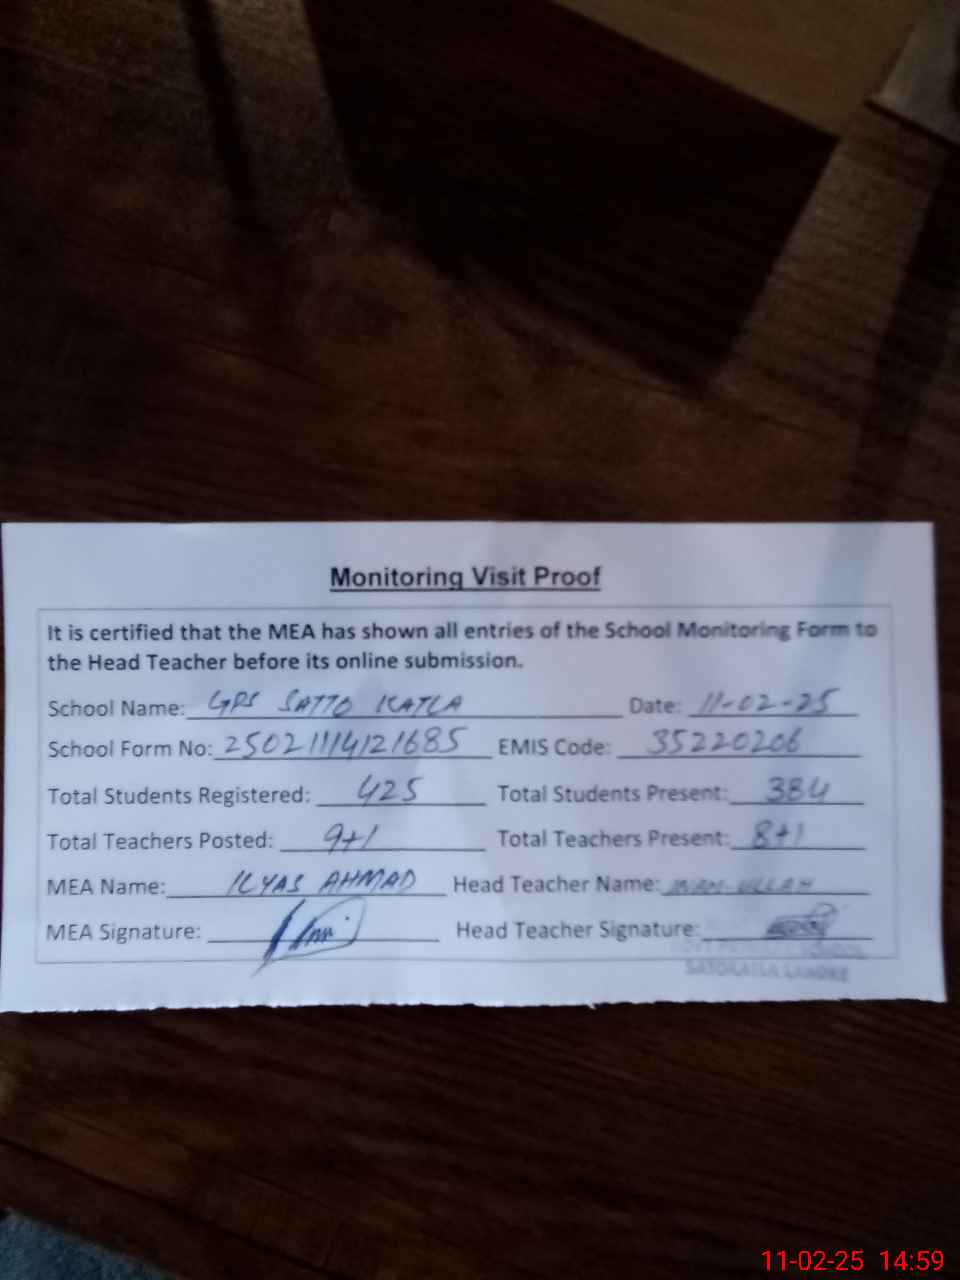 Monitoring Visit Proof
It is certified that the MEA has shown all entries of the School Monitoring Form to
the Head Teacher before its online submission.
School Name: GPS SATTO KATLA Date: 11-02-25
School Form No: 250211114121685 EMIS Code: 35220206
Total Students Registered: 425 Total Students Present: 384
Total Teachers Posted: 9+1 Total Teachers Present: 8+1
MEA Name: ILYAS AHMAD Head Teacher Name: ULLAH
MEA Signature: Head Teacher Signature:
SCHOOL
SATOKATLA LAHORE
11-02-25 14:59